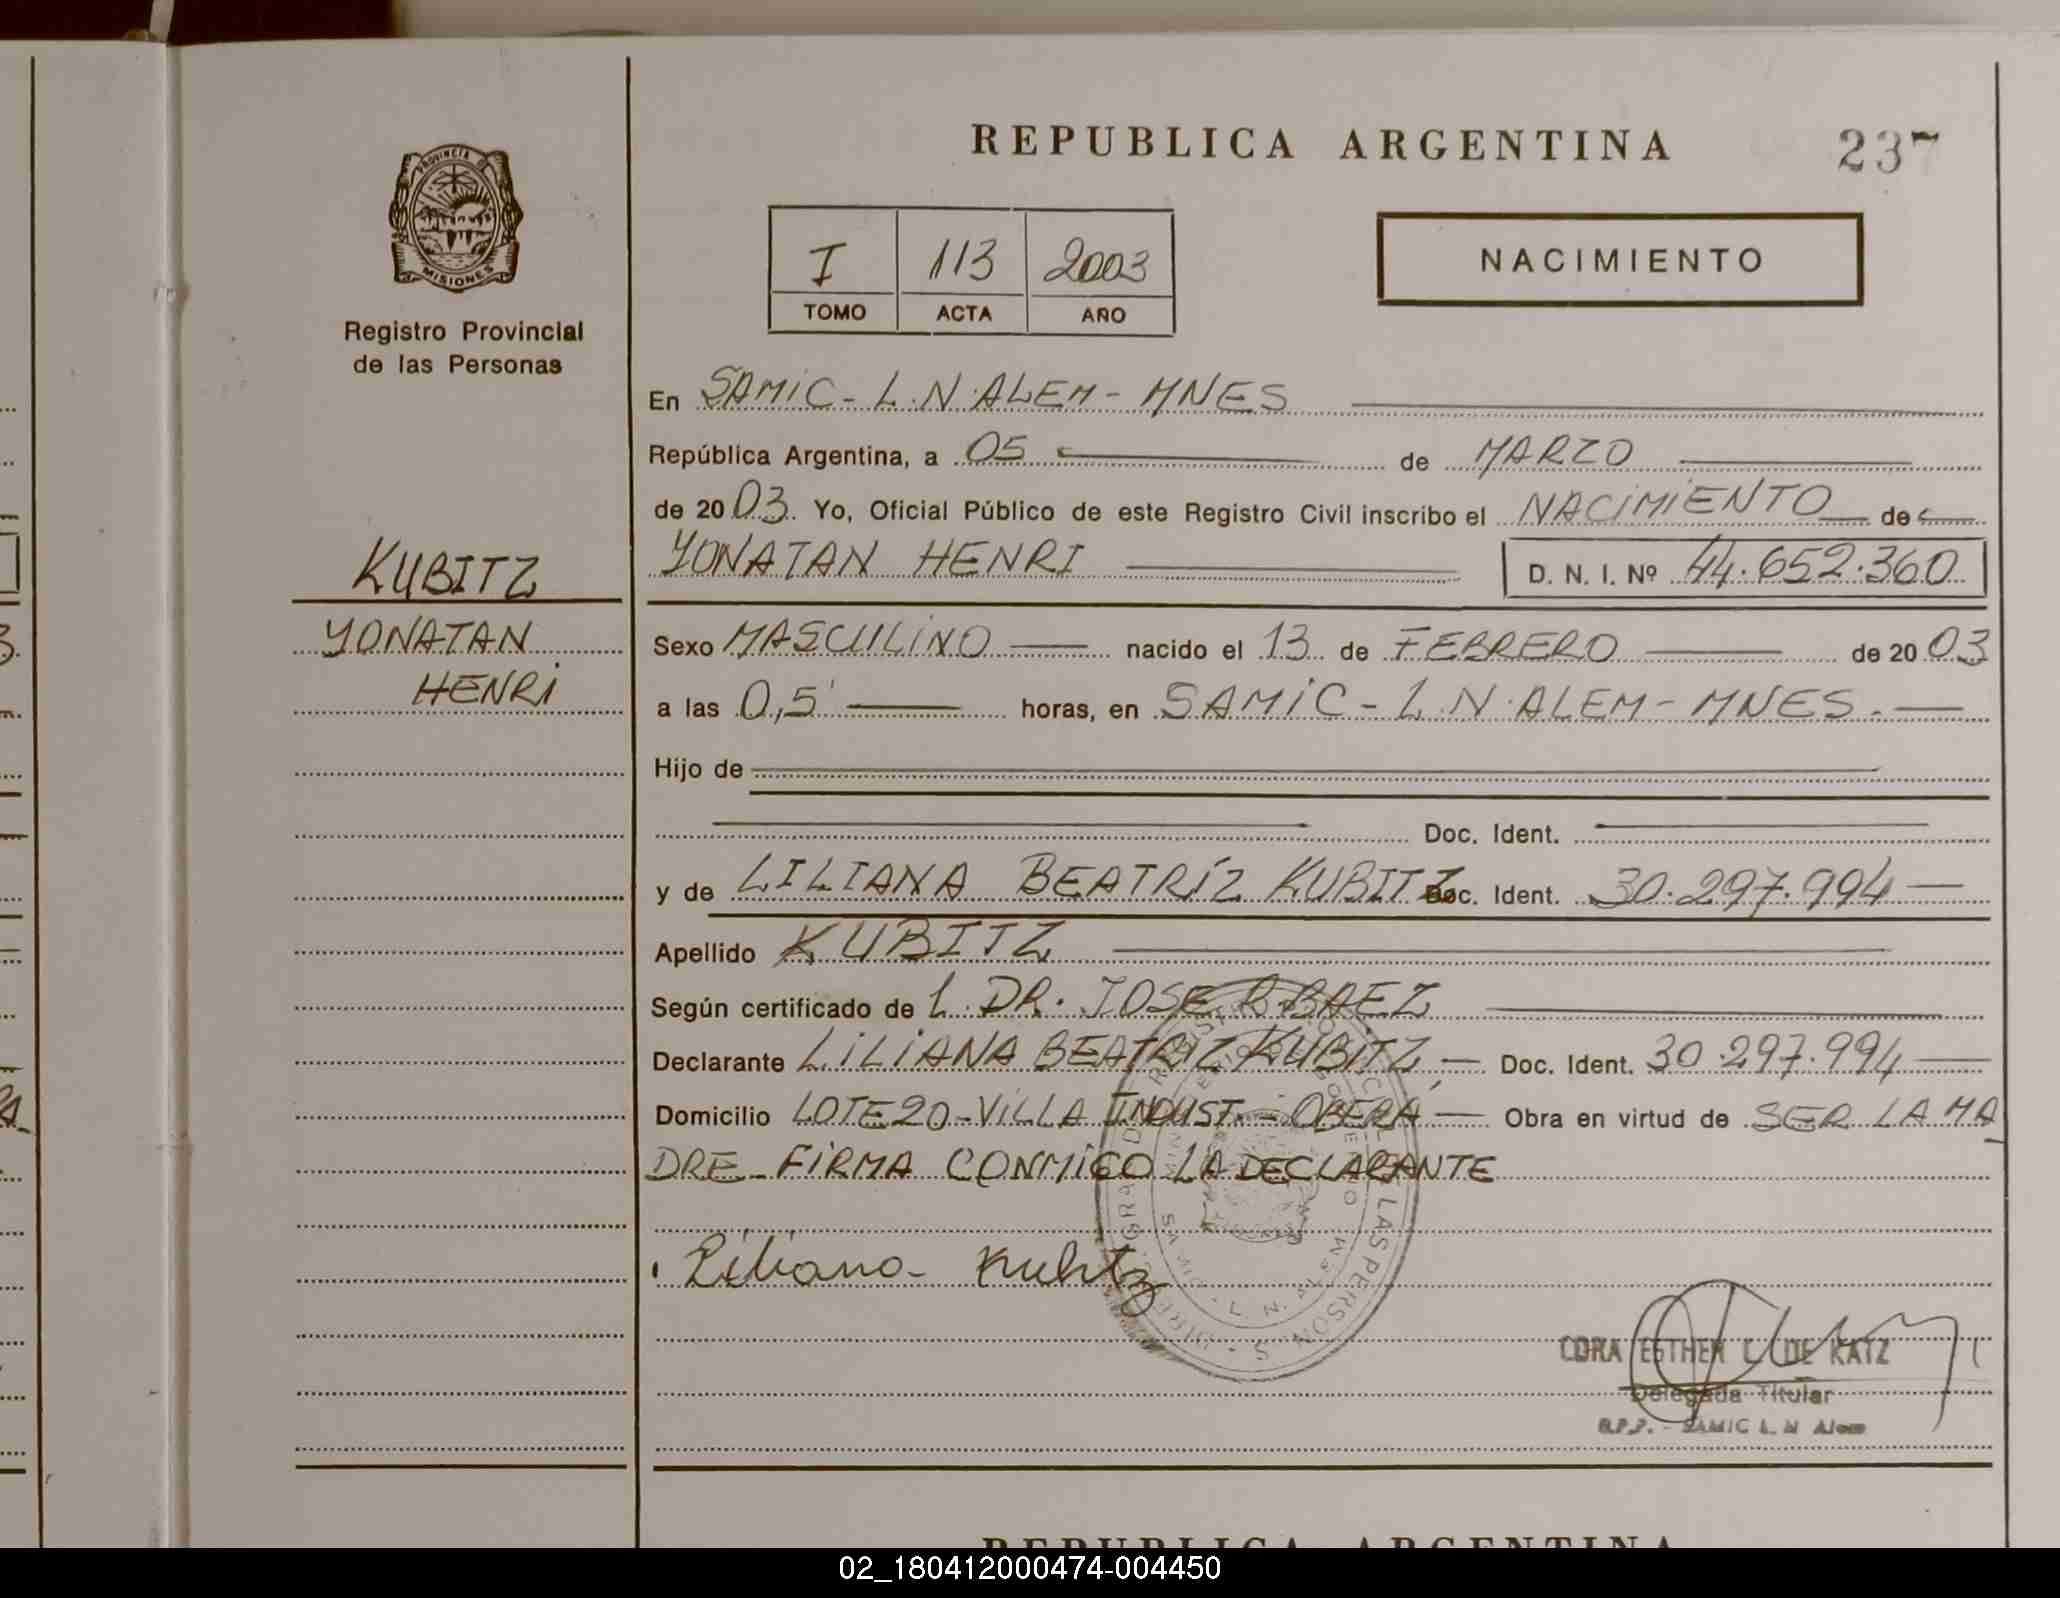 REPUBLICA ARGENTINA 237
PROVINCIA DE
MISIONES
Registro Provincial
de las Personas
I 113 2003
TOMO ACTA AÑO
NACIMIENTO
En SAMIC - L.N. ALEM - MNES
República Argentina, a 05 de MARZO
de 2003. Yo, Oficial Público de este Registro Civil inscribo el NACIMIENTO de
KUBITZ
YONATAN HENRI D. N. I. Nº 44.652.360
YONATAN
HENRI
Sexo MASCULINO nacido el 13 de FEBRERO de 2003
a las 0,5' horas, en SAMIC - L.N. ALEM - MNES.
Hijo de
Doc. Ident.
y de LILIANA BEATRÍZ KUBITZ Doc. Ident. 30.297.994
Apellido KUBITZ
Según certificado de L DR. JOSE R. BAEZ
Declarante LILIANA BEATRIZ KUBITZ, Doc. Ident. 30.297.994
Domicilio LOTE 20 - VILLA INDUST. - OBERA Obra en virtud de SER LA MA
DRE - FIRMA CONMIGO LA DECLARANTE
Liliana Kubitz
CORA ESTHER L. DE KATZ
Delegada Titular
R.P.P. - SAMIC L. N Alem
REPUBLICA ARGENTINA
02_180412000474-004450